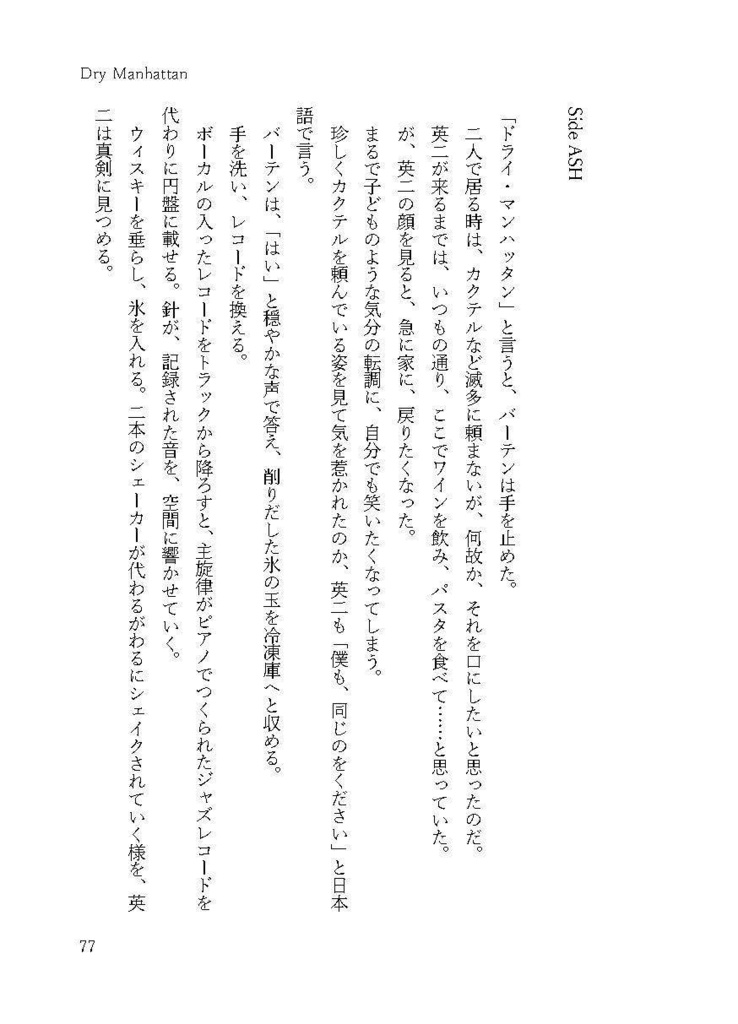 Dry Manhattan
Side ASH
「ドライ・マンハッタン」と言うと、バーテンは手を止めた。
二人で居る時は、カクテルなど滅多に頼まないが、何故か、それを口にしたいと思ったのだ。
英二が来るまでは、いつもの通り、ここでワインを飲み、パスタを食べて……と思っていた。
が、英二の顔を見ると、急に家に、戻りたくなった。
まるで子どものような気分の転調に、自分でも笑いたくなってしまう。
珍しくカクテルを頼んでいる姿を見て気を惹かれたのか、英二も「僕も、同じのをください」と日本
語で言う。
バーテンは、「はい」と穏やかな声で答え、削りだした氷の玉を冷凍庫へと収める。
手を洗い、レコードを換える。
ボーカルの入ったレコードをトラックから降ろすと、主旋律がピアノでつくられたジャズレコードを
代わりに円盤に載せる。針が、記録された音を、空間に響かせていく。
ウィスキーを垂らし、氷を入れる。二本のシェーカーが代わるがわるにシェイクされていく様を、英
二は真剣に見つめる。
77